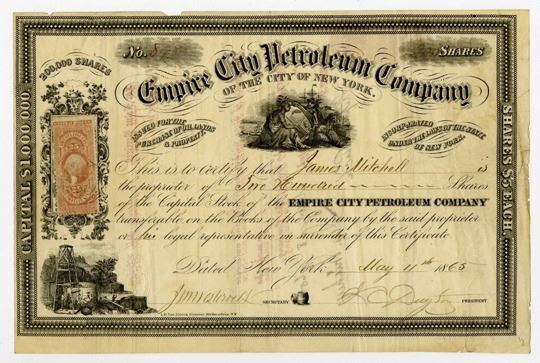 No. 8
SHARES
200,000 SHARES
Empire City Petroleum Company
OF THE CITY OF NEW YORK.
ISSUED FOR THE
PURCHASE OF OIL LANDS
& PROPERTY.
INCORPORATED
UNDER THE LAWS OF THE STATE
OF NEW YORK.
CAPITAL $1,000,000.
SHARES $5 EACH.
25
This is to certify that James Mitchell is
the proprietor of Two Hundred Shares
of the Capital Stock of the EMPIRE CITY PETROLEUM COMPANY
transferable on the Books of the Company by the said proprietor
or his legal representative on surrender of this Certificate
Dated New York May 11th 1865
SECRETARY
PRESIDENT.